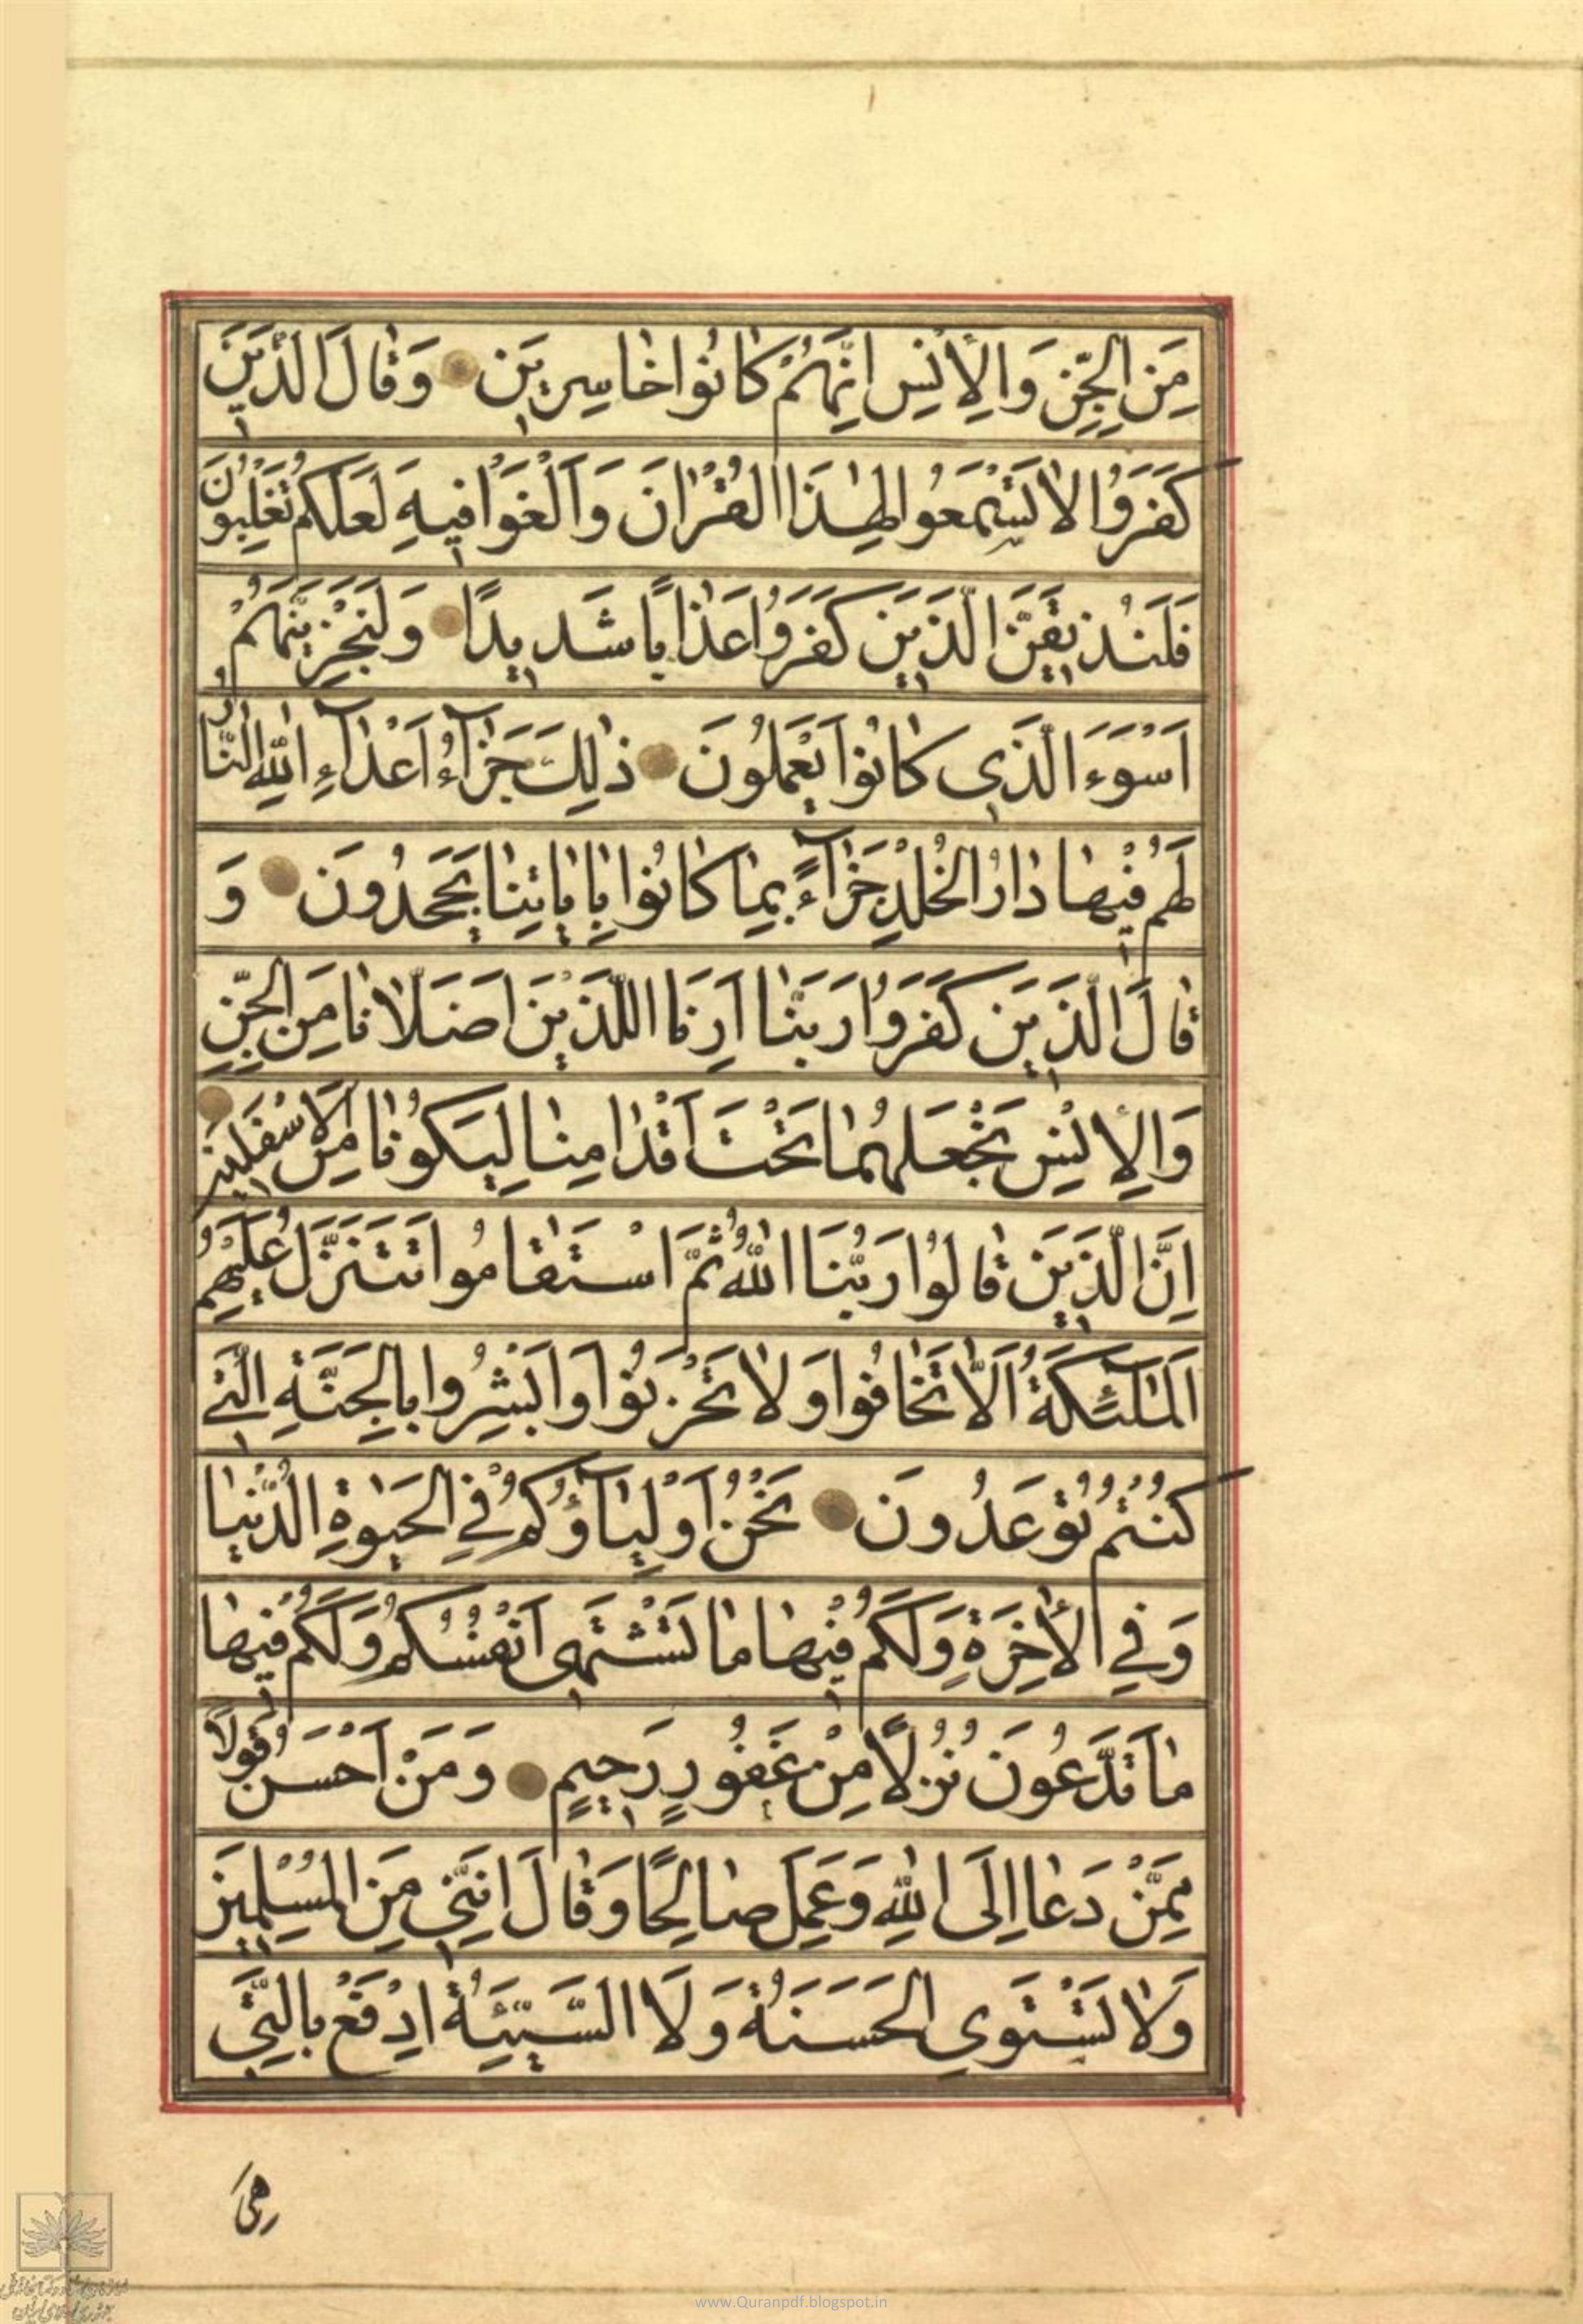 مِنَ الْجِنِّ وَالْاِنْسِ اِنَّهُمْ كَانُوا خَاسِرِينَ وَقَالَ الَّذِينَ
كَفَرُوا لَا تَسْمَعُوا لِهٰذَا الْقُرْاٰنِ وَالْغَوْا فِيهِ لَعَلَّكُمْ تَغْلِبُونَ
فَلَنُذِيقَنَّ الَّذِينَ كَفَرُوا عَذَابًا شَدِيدًا وَلَنَجْزِيَنَّهُمْ
اَسْوَءَ الَّذِي كَانُوا يَعْمَلُونَ ذٰلِكَ جَزَآءُ اَعْدَآءِ اللّٰهِ النَّارُ
لَهُمْ فِيهَا دَارُ الْخُلْدِ جَزَآءً بِمَا كَانُوا بِاٰيَاتِنَا يَجْحَدُونَ وَ
قَالَ الَّذِينَ كَفَرُوا رَبَّنَا اَرِنَا اللَّذَيْنِ اَضَلَّانَا مِنَ الْجِنِّ
وَالْاِنْسِ نَجْعَلْهُمَا تَحْتَ اَقْدَامِنَا لِيَكُونَا مِنَ الْاَسْفَلِينَ
اِنَّ الَّذِينَ قَالُوا رَبُّنَا اللّٰهُ ثُمَّ اسْتَقَامُوا تَتَنَزَّلُ عَلَيْهِمُ
الْمَلٰٓئِكَةُ اَلَّا تَخَافُوا وَلَا تَحْزَنُوا وَاَبْشِرُوا بِالْجَنَّةِ الَّتِي
كُنْتُمْ تُوعَدُونَ نَحْنُ اَوْلِيَآؤُكُمْ فِي الْحَيٰوةِ الدُّنْيَا
وَفِي الْاٰخِرَةِ وَلَكُمْ فِيهَا مَا تَشْتَهِي اَنْفُسُكُمْ وَلَكُمْ فِيهَا
مَا تَدَّعُونَ نُزُلًا مِنْ غَفُورٍ رَحِيمٍ وَمَنْ اَحْسَنُ قَوْلًا
مِمَّنْ دَعَا اِلَى اللّٰهِ وَعَمِلَ صَالِحًا وَقَالَ اِنَّنِي مِنَ الْمُسْلِمِينَ
وَلَا تَسْتَوِي الْحَسَنَةُ وَلَا السَّيِّئَةُ اِدْفَعْ بِالَّتِي
هِيَ
www.Quranpdf.blogspot.in